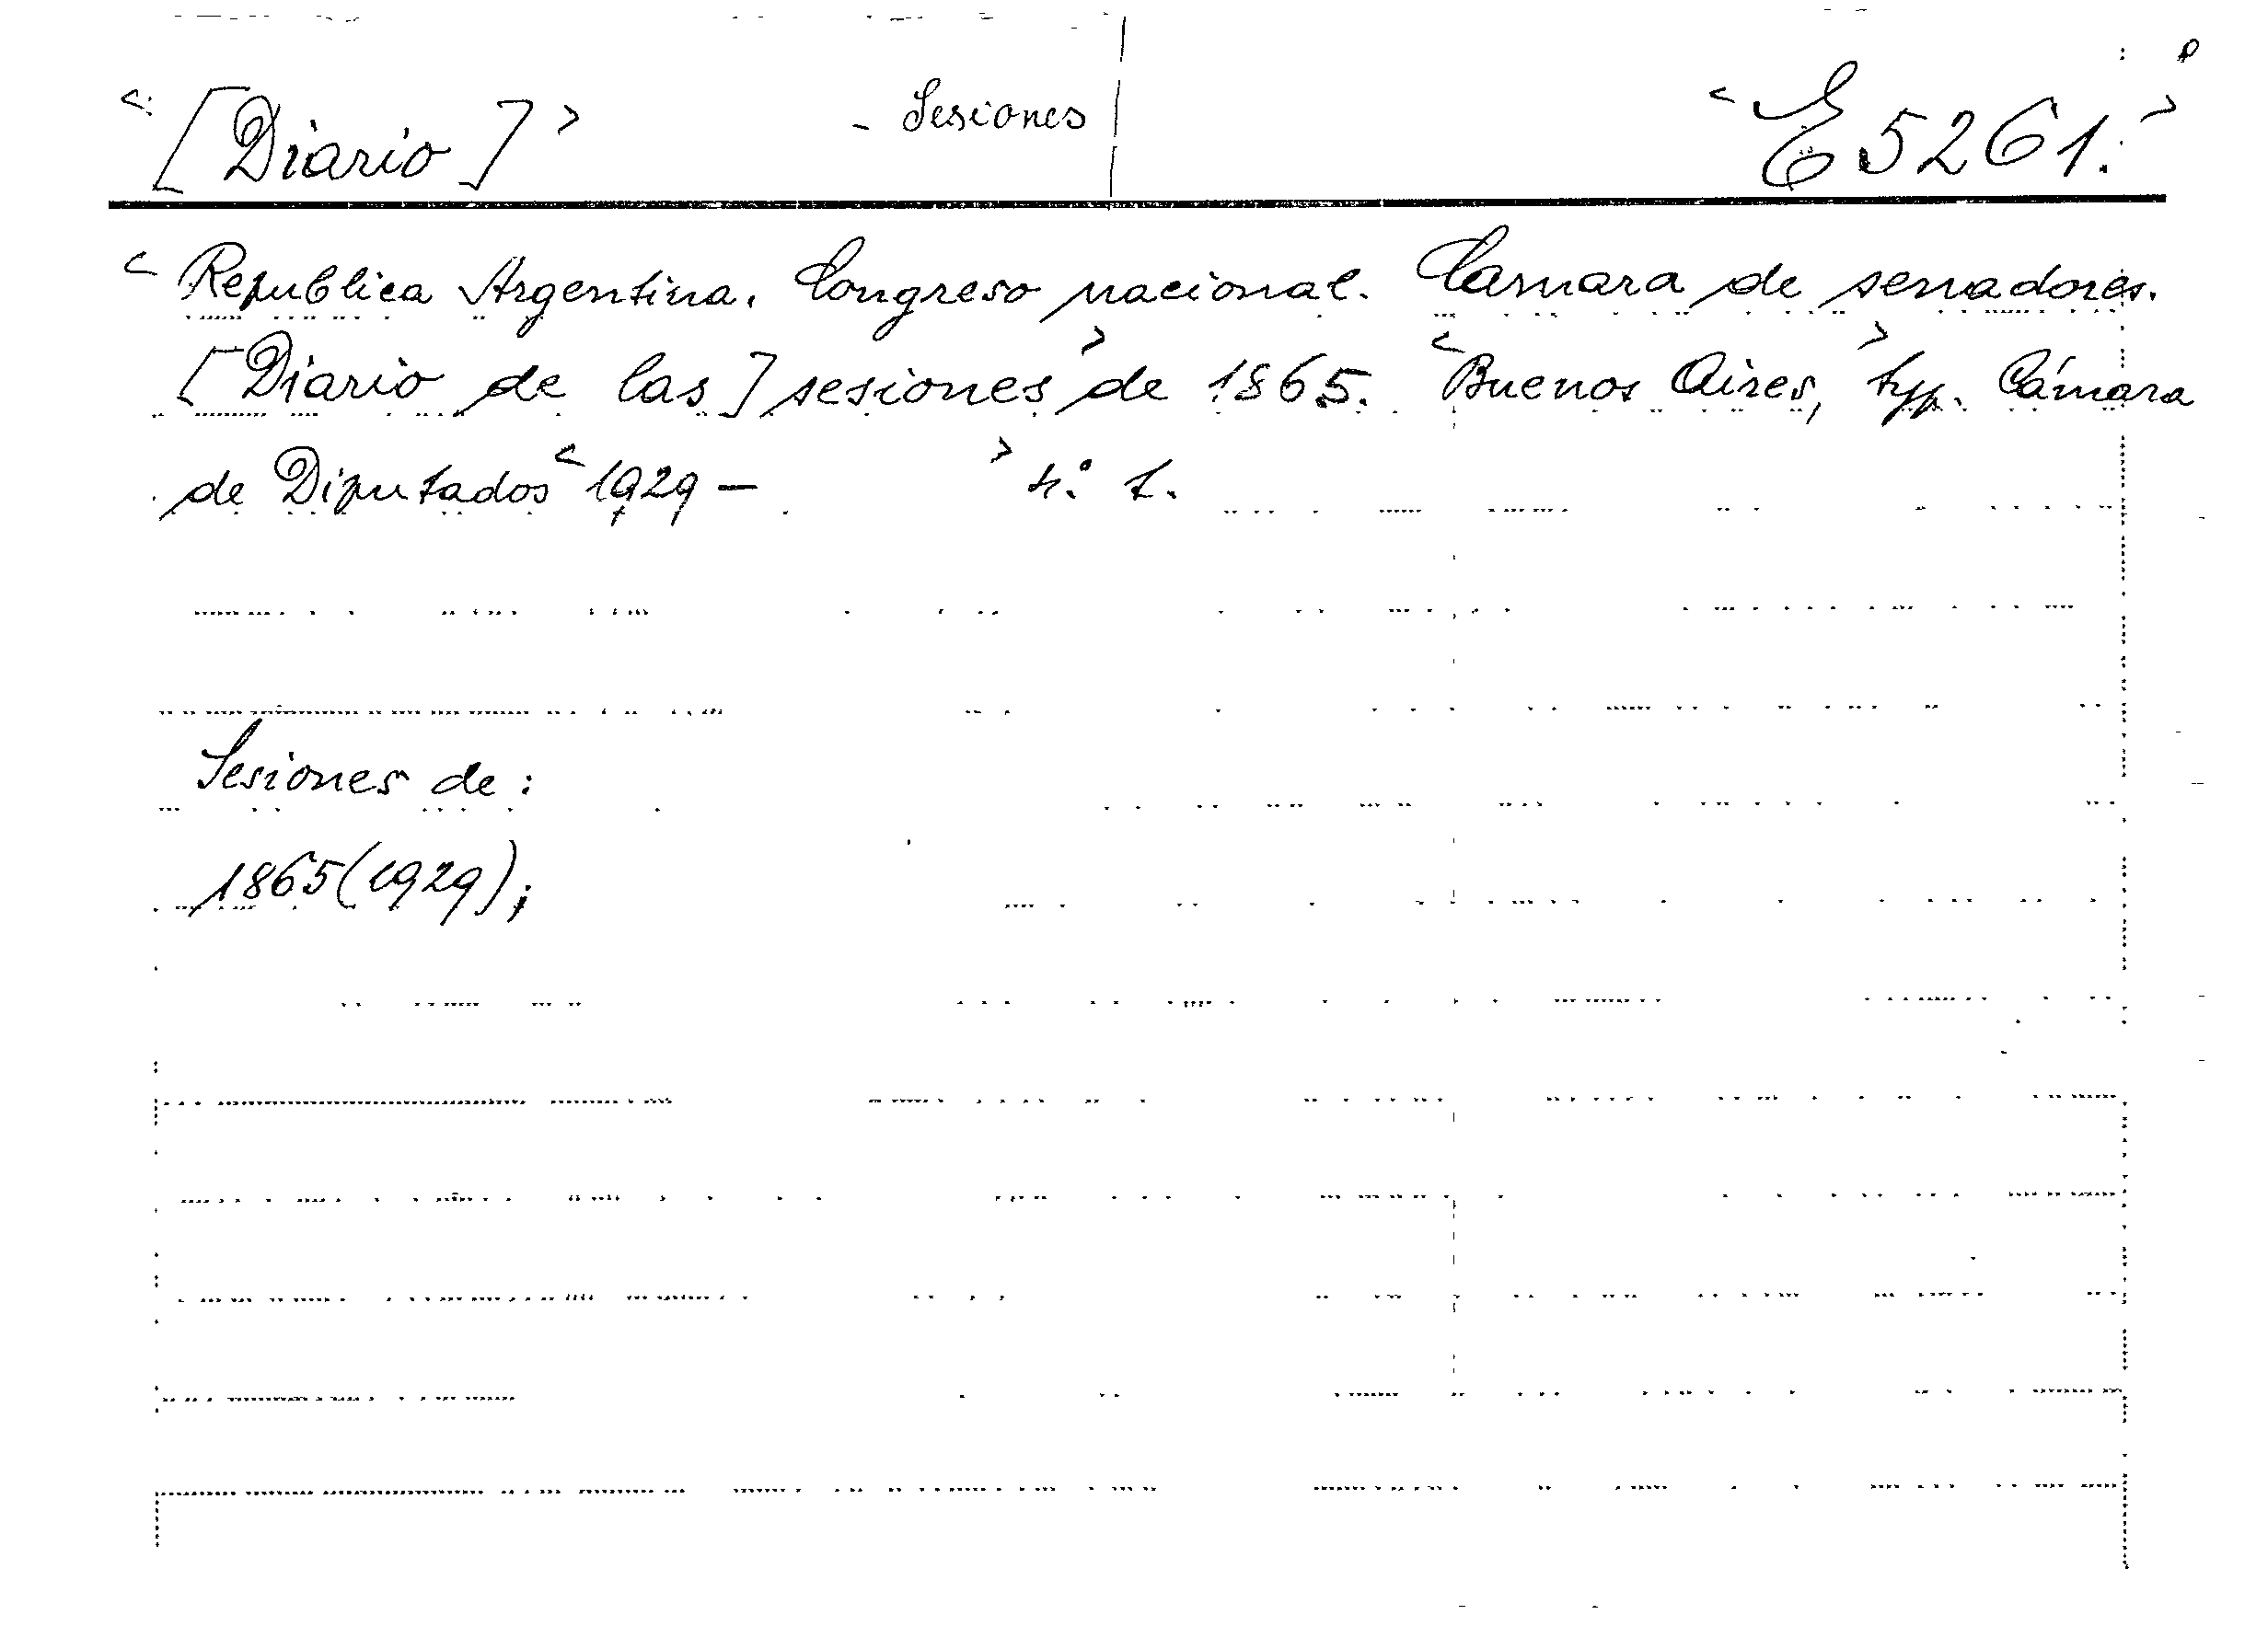 < [Diario] > - Sesiones < E 5261. >
< Republica Argentina. Congreso nacional. Camara de senadores.
[Diario de las] sesiones > de 1865. < Buenos Aires, > typ. Cámara
de Diputados < 1929 - > 4.° t.
Sesiones de :
1865 (1929);